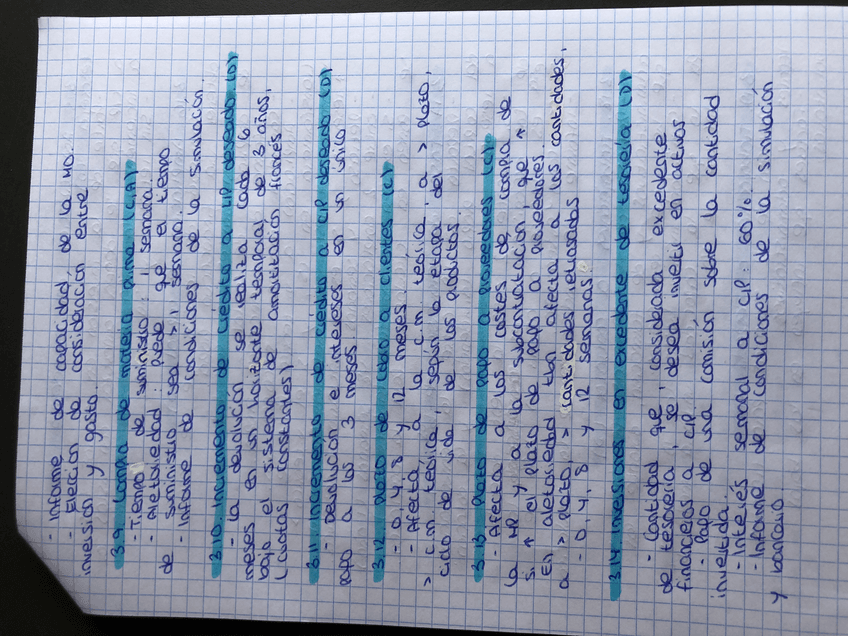 - Informe de capacidad de la MD.
- Elección de consideración entre
inversión y gasto.
3.9. Compra de materia prima (C,A)
- Tiempo de suministro: 1 semana.
- Aletoriedad: puede que el tiempo
de suministro sea > 1 semana.
- Informe de condiciones de la simulación.
3.10. Incremento de crédito a C/P deseado (D)
- La devolución se realiza cada 6
meses en un horizonte temporal de 3 años,
bajo el sistema de amortización francés
(cuotas constantes)
3.11. Incremento de crédito a C/P deseado (D)
- Devolución e intereses en un único
pago a los 3 meses
3.12. Plazo de cobro a clientes (C)
- 0, 4, 8 y 12 meses.
- Afecta, a la c.m. teórica, a > plazo,
> c.m. teórica, según la etapa del
ciclo de vida de los productos.
3.13 Plazo de pago a proveedores (C)
- Afecta a los costes de compra de
la MP y a la subcontratación, que ↑
si ↑ el plazo de pago a proveedores.
En aletoriedad tbn afecta a las cantidades,
a > plazo, > cantidades retrasadas
- 0, 4, 8 y 12 semanas.
3.14 Inversiones en excedente de tesorería (D)
- Cantidad que, considerada excedente
de tesorería, se desea invertir en activos
financieros a C/P.
- Pago de una comisión sobre la cantidad
invertida.
- Interés semanal a C/P: 60%.
- Informe de condiciones de la simulación
y bancario